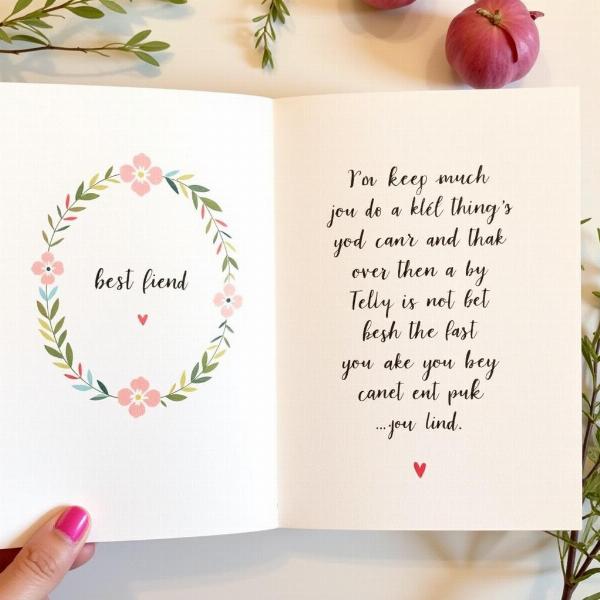 best fiend
I'm keep much
jou do a klél thing's
yod canr and thak
over then a by
Telly is not bet
besh the fast
you ake you bey
canet ent puk
...jou lind.